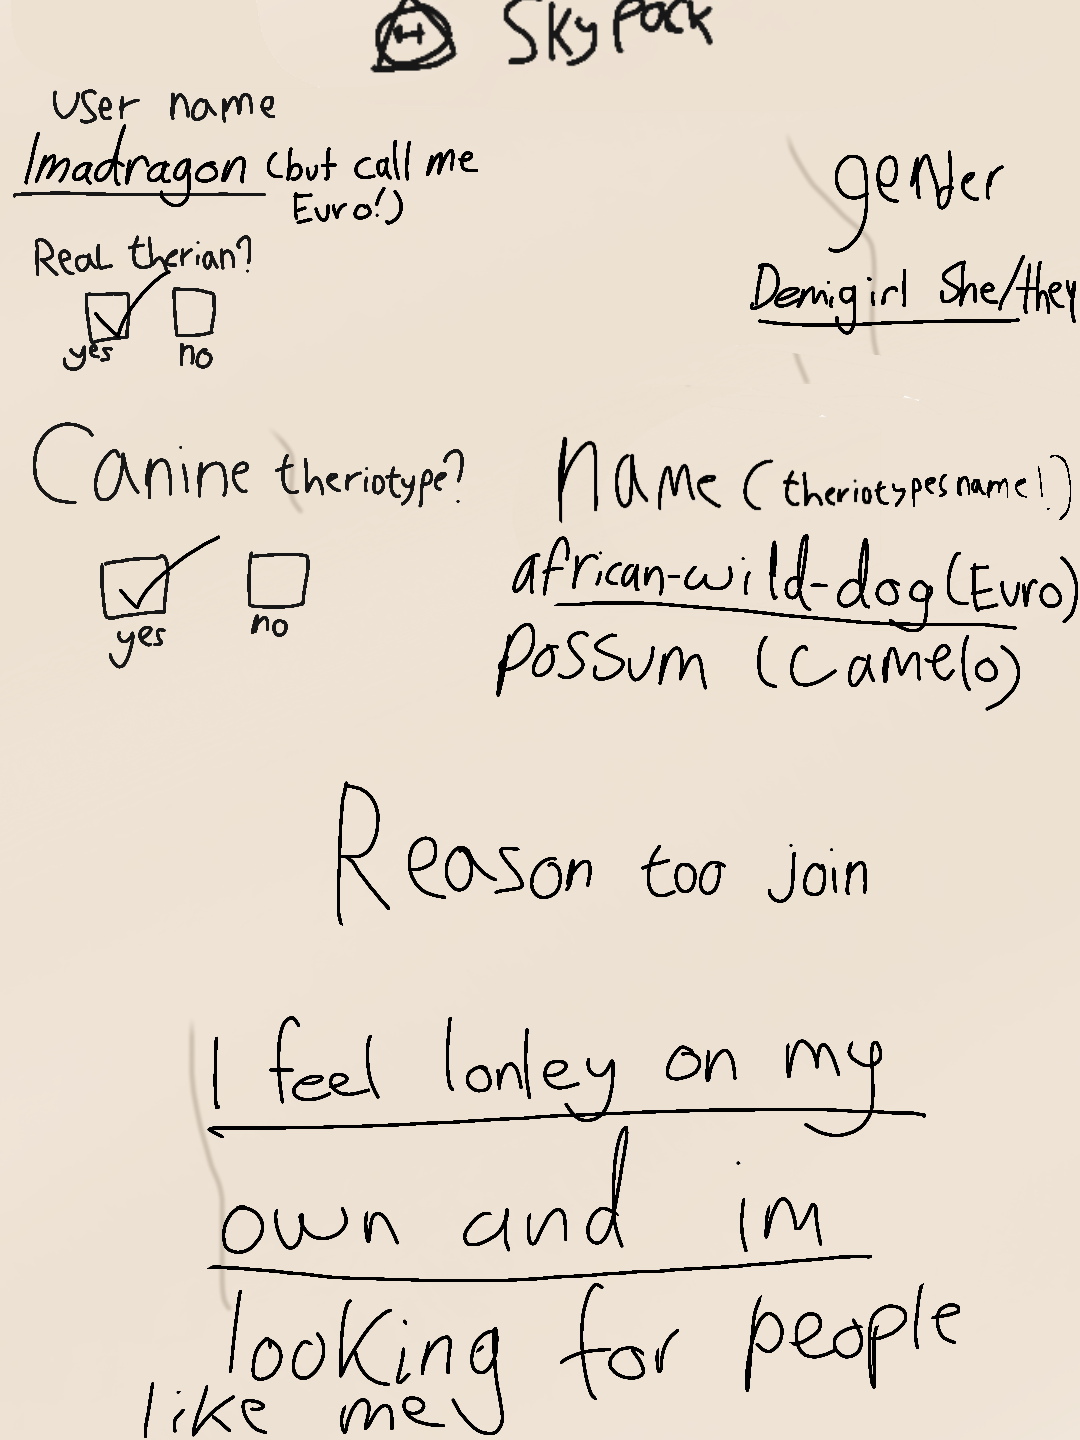 Sky Pack
User name
Imadragon (but call me
Euro!)
gender
Real therian?
Demigirl She/they
yes no
Canine theriotype?
Name (theriotypes name!)
african-wild-dog (Euro)
yes no
Possum (Camelo)
Reason too join
I feel lonley on my
own and im
looking for people
like me